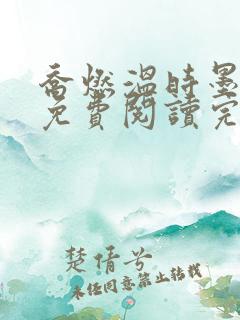 喬燃溫時墨
免費閱讀完
楚情兮
未經同意禁止轉載